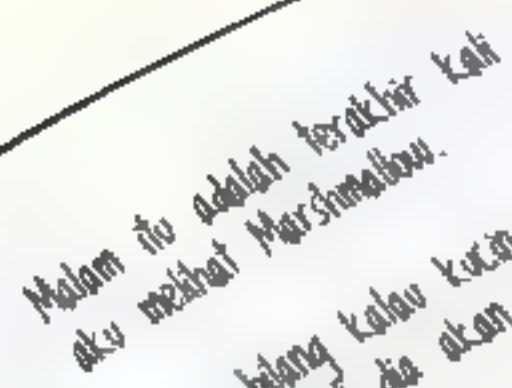 Malam itu adalah terakhir kali
aku melihat Marshmallow.
bilang kalau
dia akan